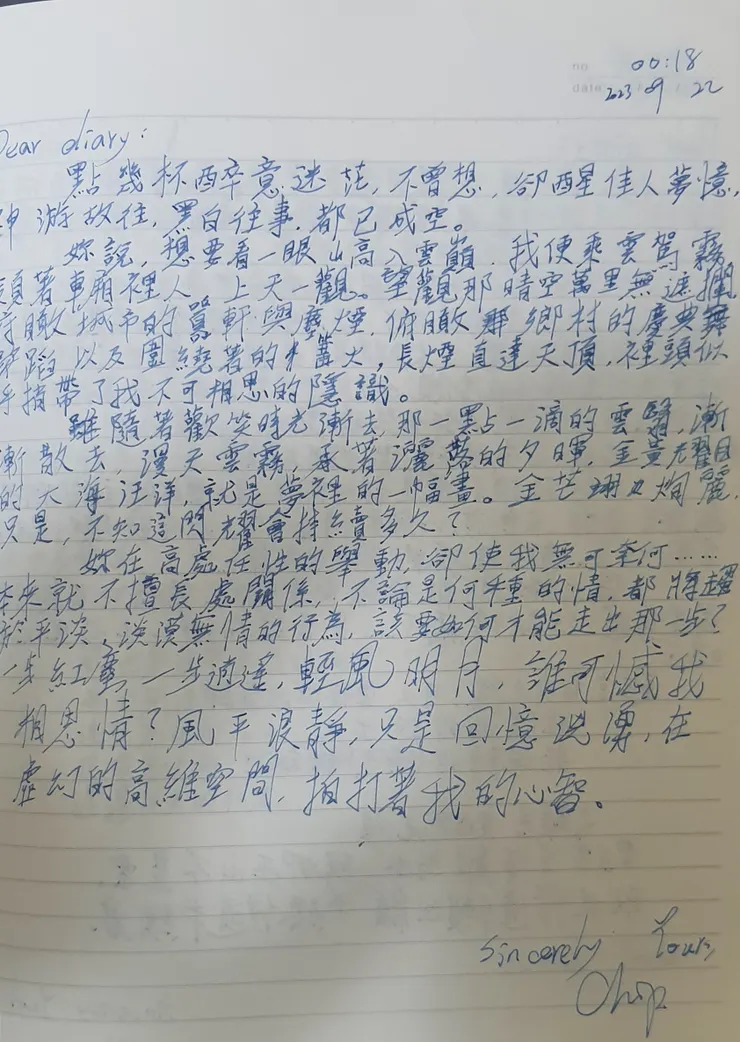 no 00:18
date 2023 09 22
Dear diary:
點幾杯醉意迷茫,不曾想,卻醒佳人夢憶,
神游故往,黑白往事,都已成空。
妳說,想要看一眼山高入雲巔,我便乘雲駕霧
領著車廂裡人,上天一觀。望觀那晴空萬里無遮攔
俯瞰城市的囂軒與塵煙,俯瞰那鄉村的慶典舞
蹈以及圍繞著的篝火,長煙直達天頂,裡頭似
乎捎帶了我不可相思的隱識。
雖隨著歡笑時光漸去,那一點一滴的雲翳,漸
漸散去,漫天雲霧,承著灑落的夕暉,金黃耀目
的大海汪洋,就是夢裡的一幅畫。金芒 絢麗,
只是,不知這閃耀會持續多久?
妳在高處任性的舉動,卻使我無可奈何……
本來就不擅長處關係,不論是何種的情,都將趨
於平淡,淡漠無情的行為,該要如何才能走出那一步?
一步紅塵,一步逍遙,輕風明月,誰可憾我
相思情?風平浪靜,只是回憶洶湧,在
虛幻的高維空間,拍打著我的心智。
Sincerely Yours,
Chip